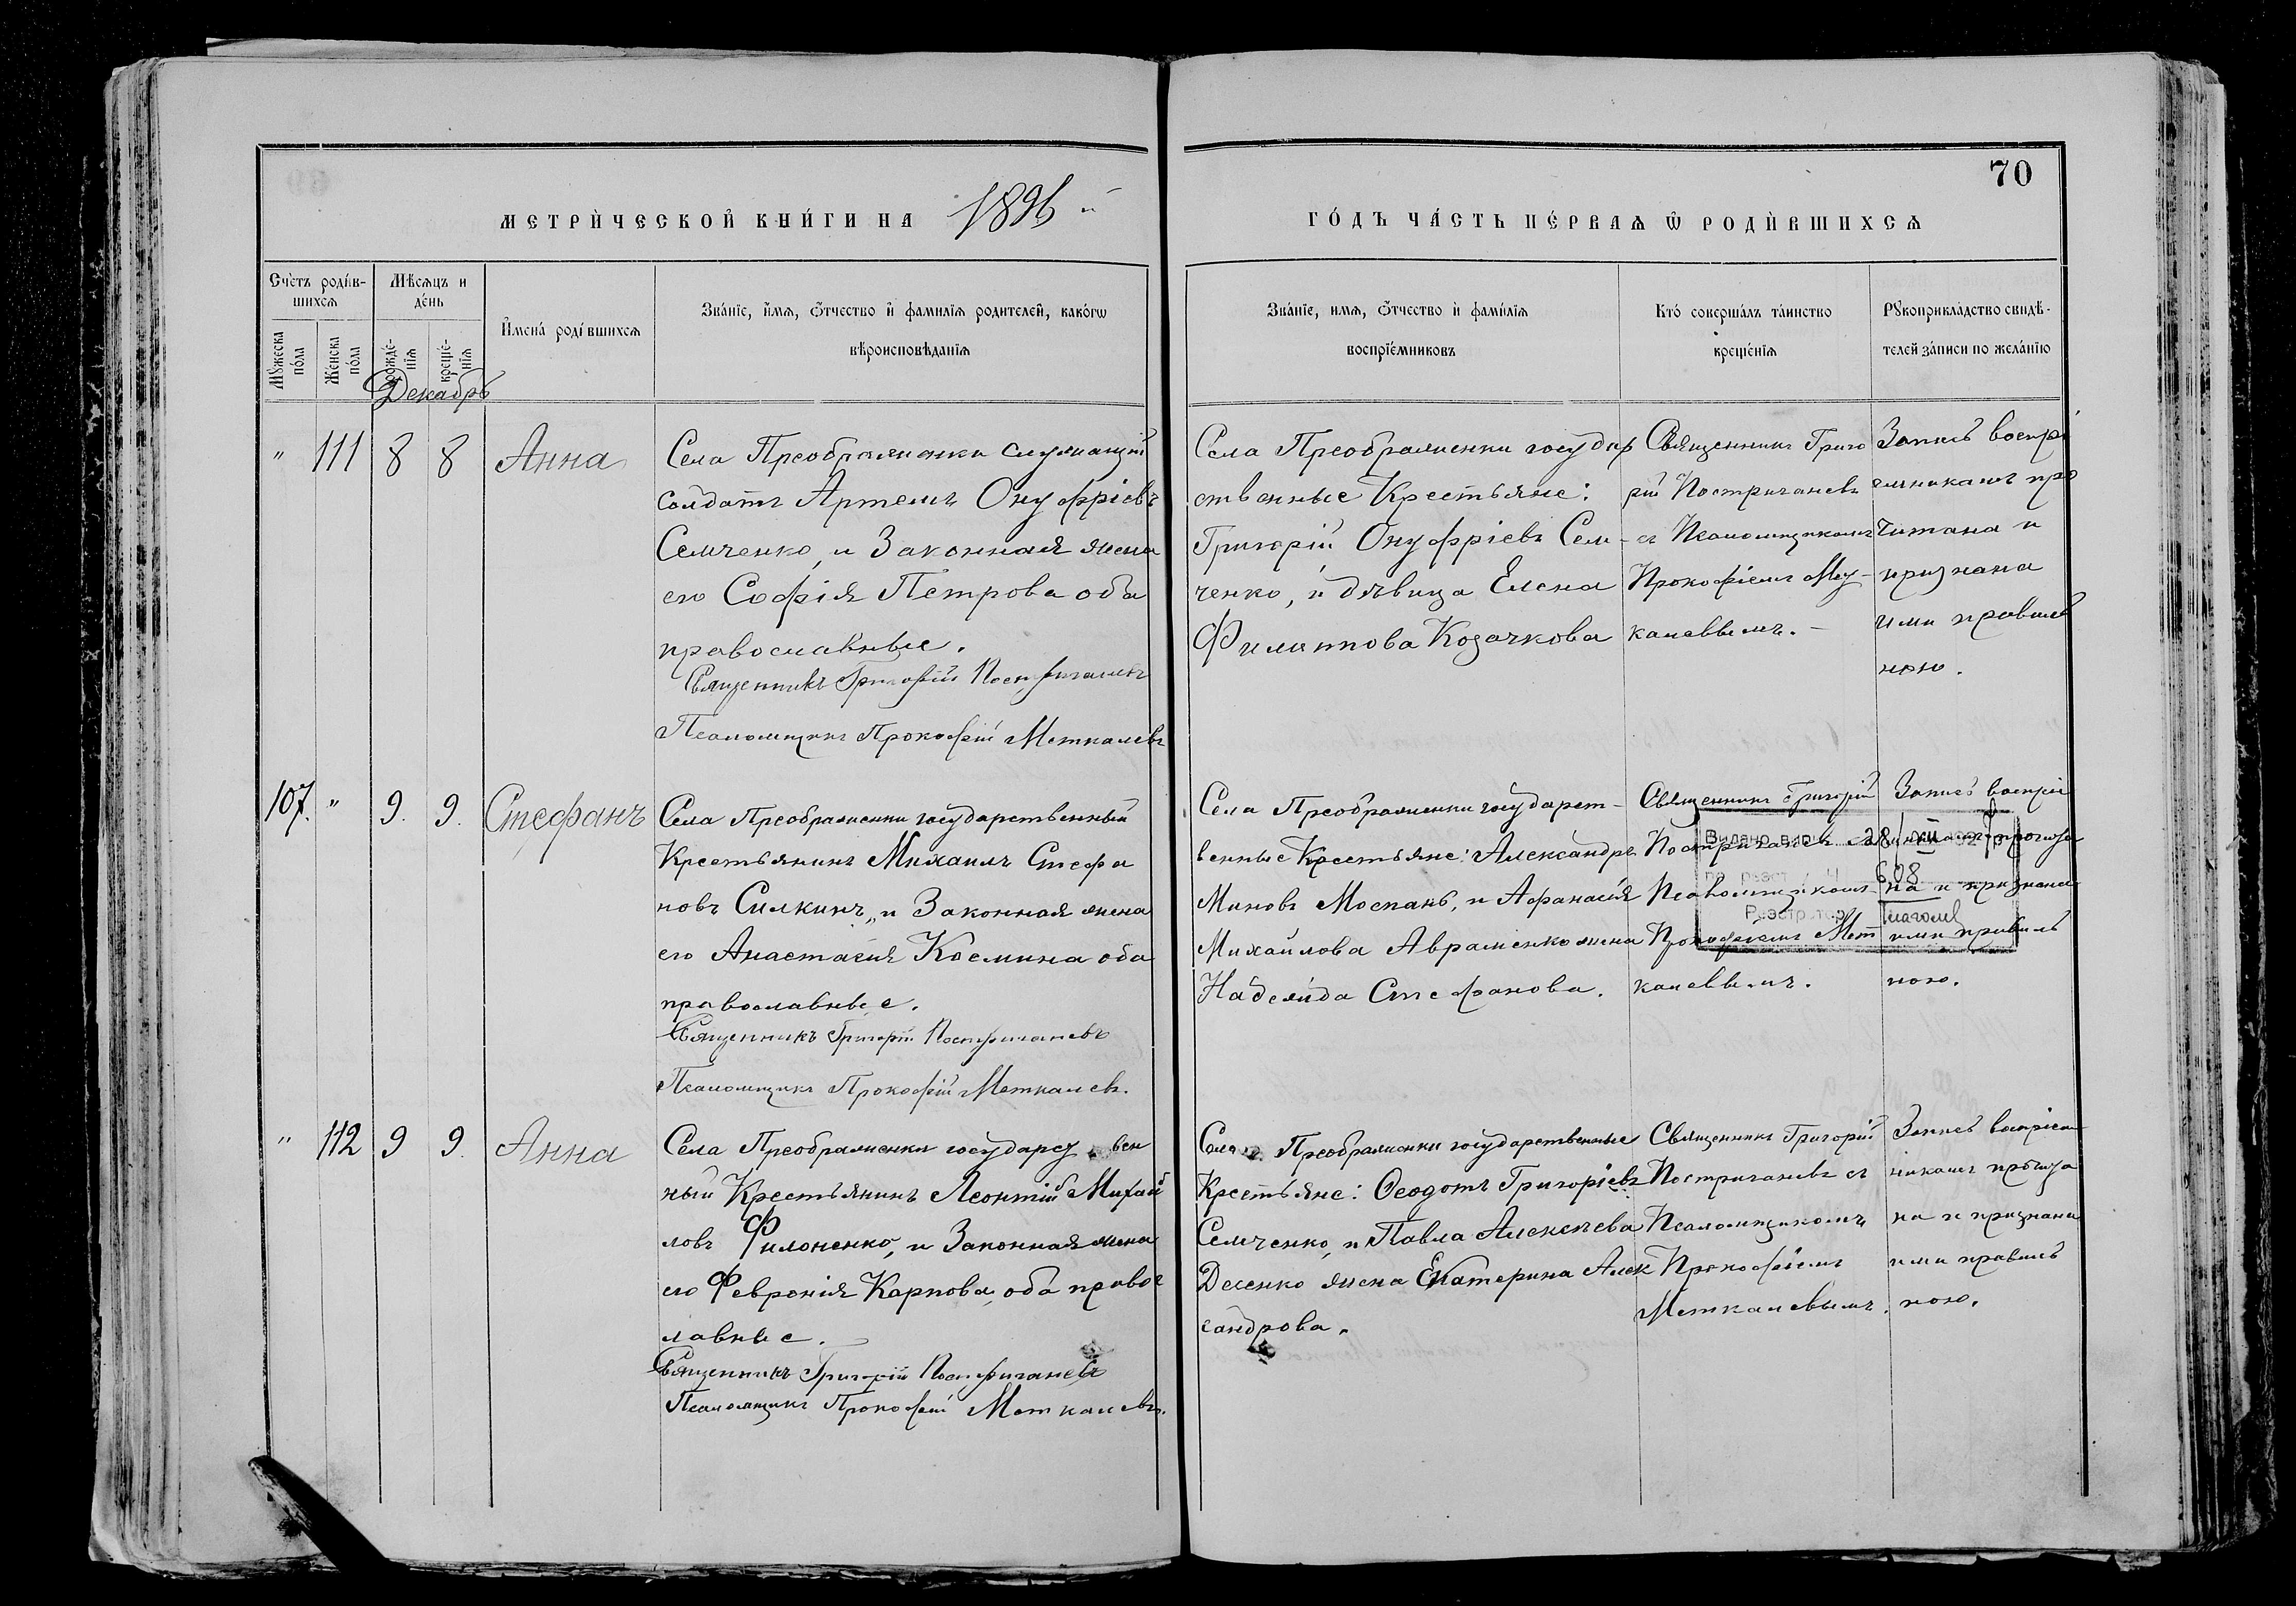 70
МЕТРИЧЕСКОЙ КНИГИ НА 1896 й
ГОДЪ ЧАСТЬ ПЕРВАЯ Ѿ РОДИВШИХСЯ
Счетъ родив-
шихся
Мѣсяцъ и
день
Мꙋжеска
пола
Женска
пола
рожде-
нія
креще-
нія
Имена родившихся
Званіе, имя, ѿчество и фамилія родителей, какогѡ
вѣроисповѣданія
Званіе, имя, ѿчество и фамилія
воспріемниковъ
Кто совершалъ таинство
крещенія
Рꙋкоприкладство свидѣ-
телей записи по желанію
Декабрь
" 111 8 8 Анна
Села Преображенки служащій
солдатъ Артемъ Онуфріевъ
Семченко, и Законная жена
его Софія Петрова оба
православные.
Священникъ Григорій Постриганевъ
Псаломщикъ Прокофій Меткалевъ
Села Преображенки государ
ственные Крестьяне:
Григорій Онуфріевъ Сем-
ченко, и дѣвица Елена
Филиппова Козачкова
Священникъ Григо
рій Постриганевъ
съ Псаломщикомъ
Прокофіемъ Ме
калевымъ.
Запись воспрі
емникамъ про
читана и
признана
ими правиль
ною.
107. " 9. 9. Стефанъ
Села Преображенки государственный
Крестьянинъ Михаилъ Стефа
новъ Силкинъ, и Законная жена
его Анастасія Косьмина оба
православные.
Священникъ Григорій Постриганевъ
Псаломщикъ Прокофій Меткалевъ.
Села Преображенки государст-
венные Крестьяне: Александръ
Миновъ Моспанъ, и Афанасія
Михайлова Авраменко жена
Надежда Стефанова.
Священникъ Григорій
Постриганевъ съ
Псаломщикомъ
Прокофіемъ Мет
калевымъ.
Запись воспріе
никамъ прочита
на и признана
ими правиль
ною.
Видано вип. 28/XII
по реєст. Ч 608
Реєстратор
" 112 9 9. Анна
Села Преображенки государст вен
ный Крестьянинъ Леонтій Михай
ловъ Филоненко, и Законная жена
его Февронія Карпова, оба правос
лавные.
Священникъ Григорій Постриганевъ
Псаломщикъ Прокофій Меткалевъ.
Села Преображенки государственные
Крестьяне: Ѳеодотъ Григоріевъ
Семченко, и Павла Алексѣева
Десенко жена Екатерина Алек
сандрова.
Священникъ Григорій
Постриганевъ съ
Псаломщикомъ
Прокофіемъ
Меткалевымъ.
Запись воспріем
никамъ прочита
на и признана
ими правиль
ною.